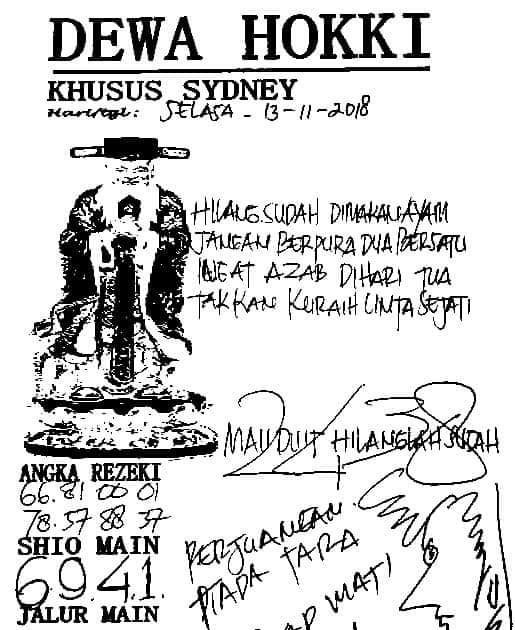 DEWA HOKKI
KHUSUS SYDNEY
Hari/tgl: SELASA - 13-11-2018
HILANG SUDAH DIMAKAN AYAM
JANGAN BERPURA DUA BERSATU
INGAT AZAB DIHARI TUA
TAKKAN KURAIH CINTA SEJATI
2438
MAU DUIT HILANGLAH SUDAH
ANGKA REZEKI
66.81 00 01
78.57 88 37
SHIO MAIN
6.9.4.1.
JALUR MAIN
PERJUANGAN
PIADA TARA
MATI